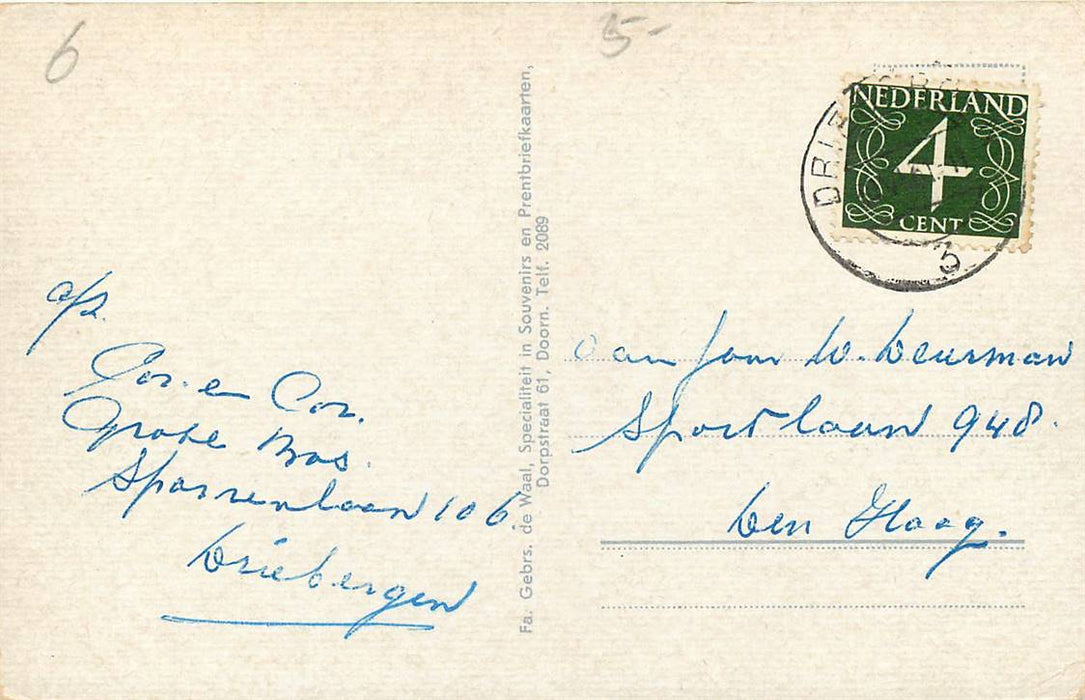 6
5-
NEDERLAND
4
CENT
DRIE
3
Fa. Gebrs. de Waal, Specialiteit in Souvenirs en Prentbriefkaarten,
Dorpstraat 61, Doorn. Telf. 2089
afz.
Cor. en Cor.
Grote Bos.
Sparrenlaan 106
Driebergen
Aan fam W. Deurman
Sportlaan 948.
Den Haag.